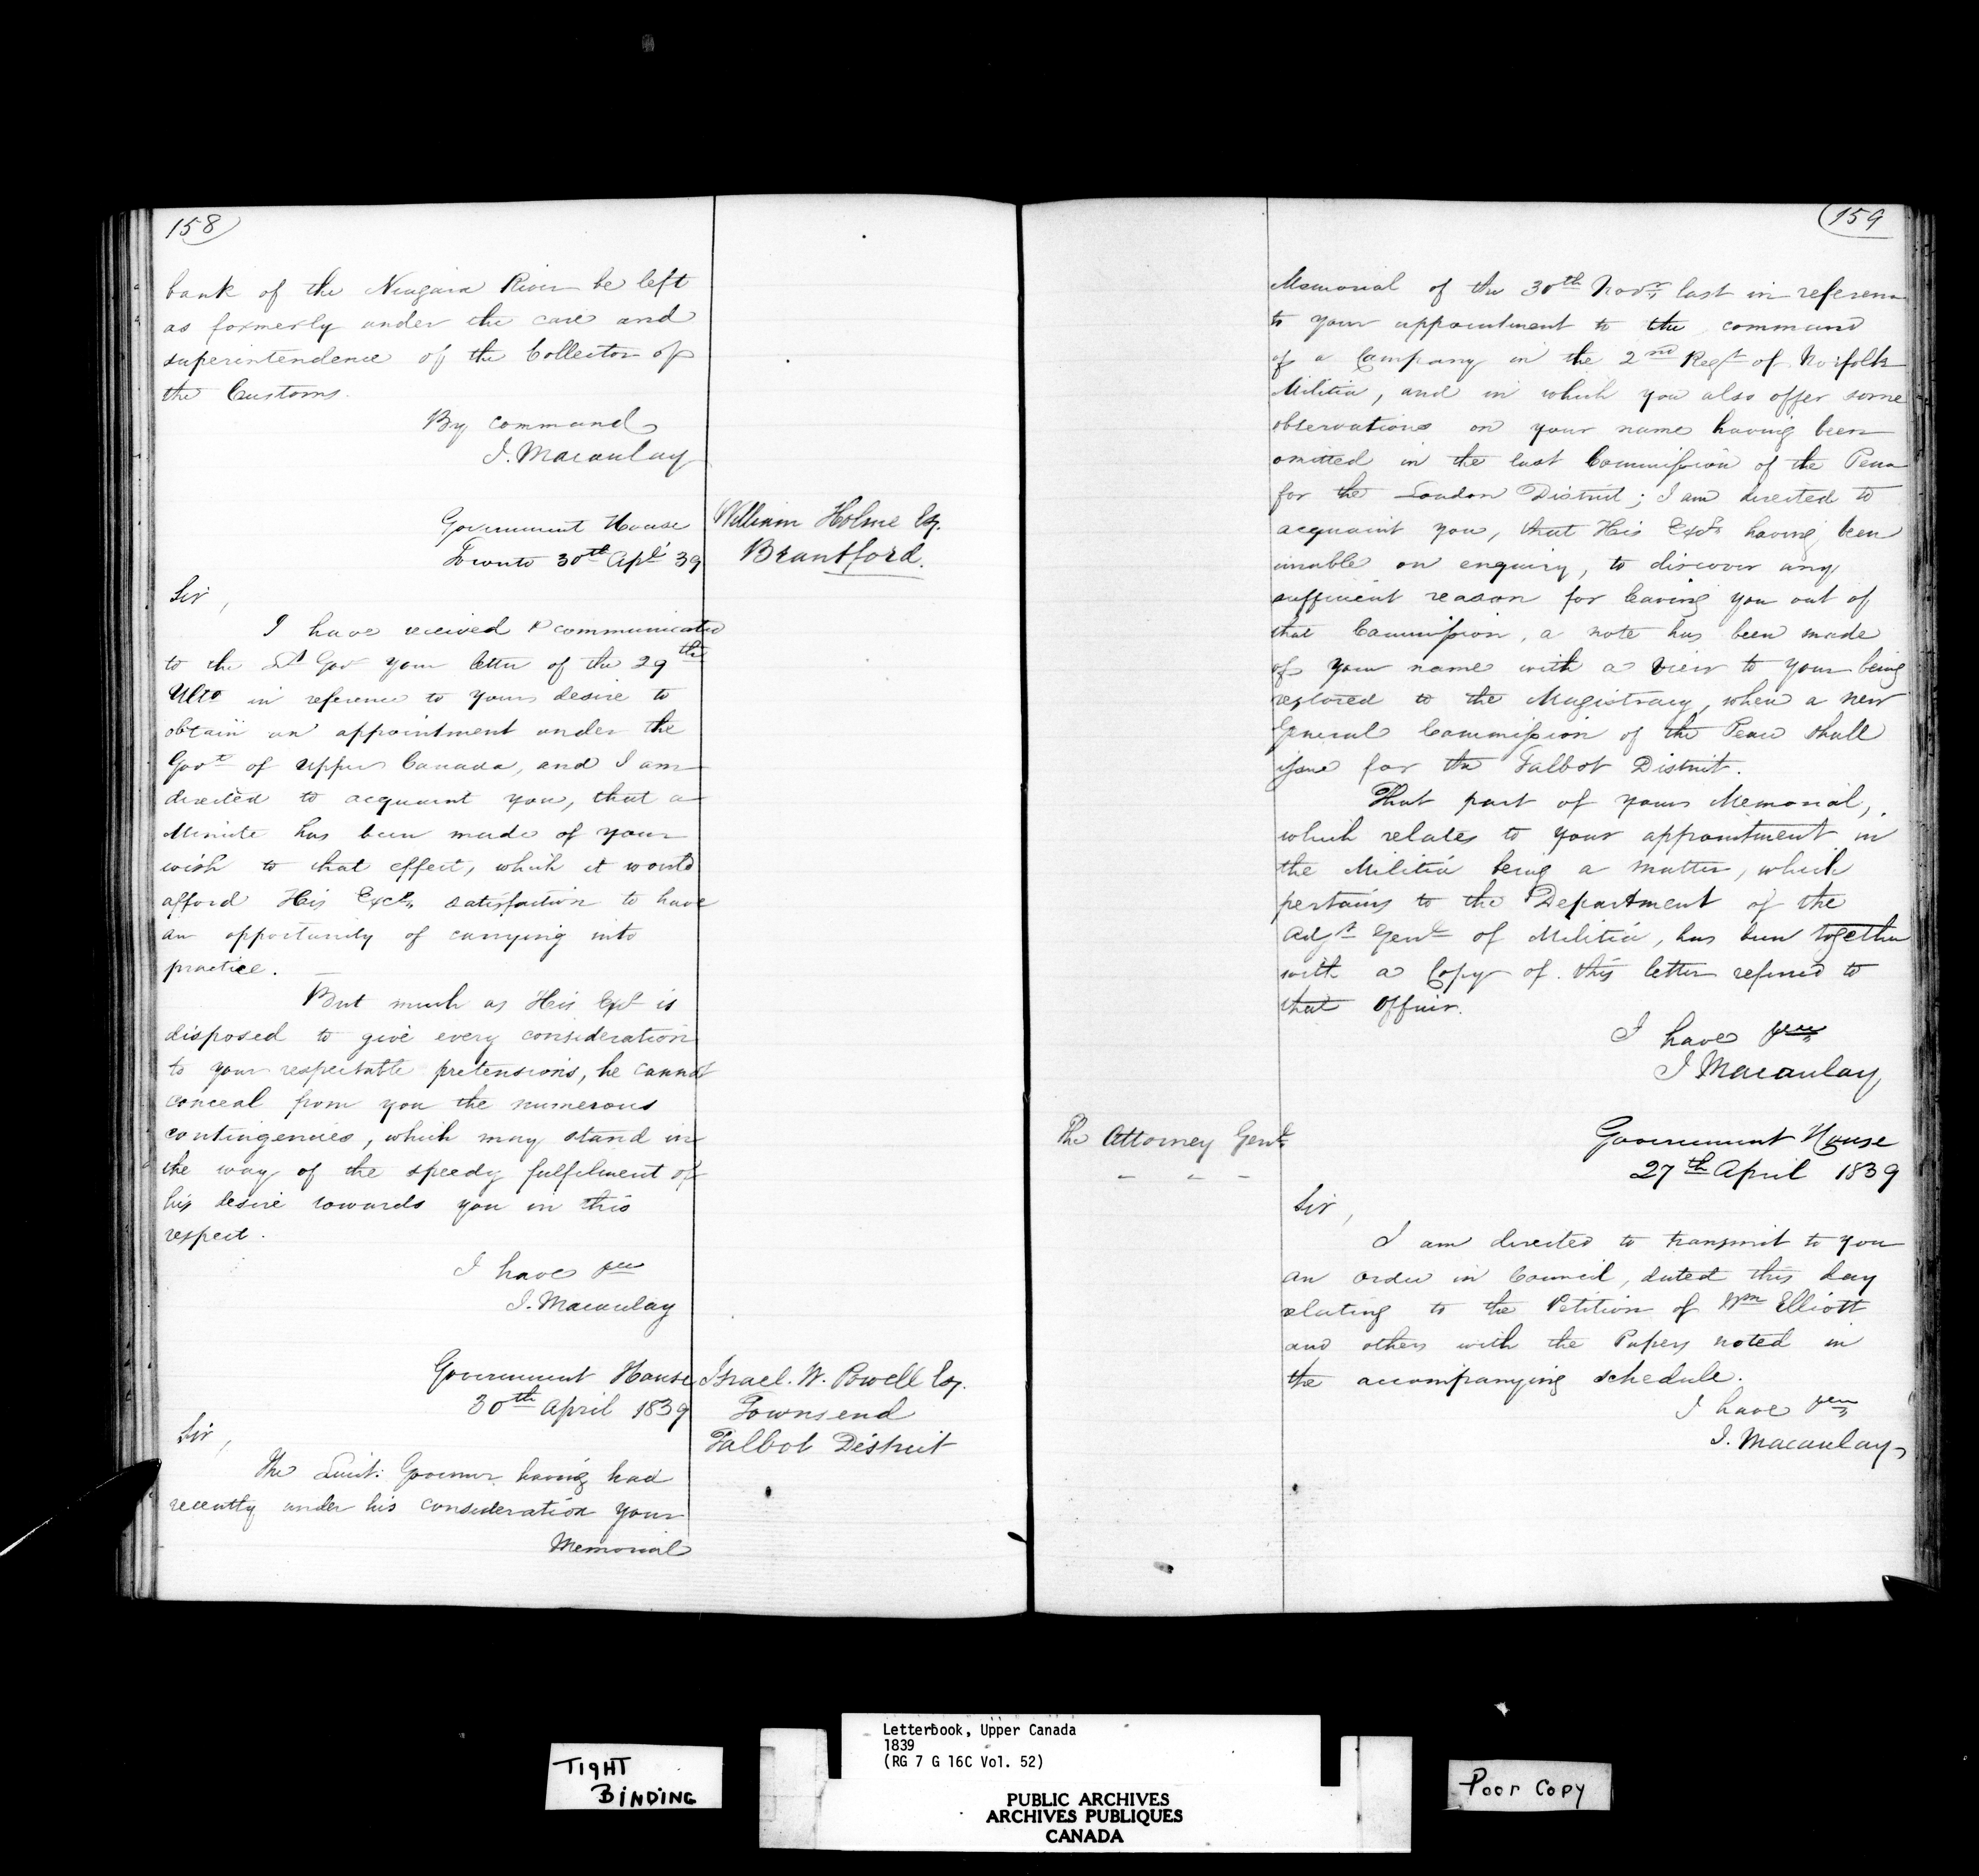 158
bank of the Niagara River be left
as formerly under the care and
superintendence of the Collector of
the Customs.
By command
J. Macaulay
William Holme Esq.
Brantford.
Government House
Toronto 30th Apl 39
Sir,
I have received & communicated
to the Lt Govr your letter of the 29th
Ulto in reference to your desire to
obtain an appointment under the
Govt of Upper Canada, and I am
directed to acquaint you, that a
Minute has been made of your
wish to that effect, which it would
afford His Excy satisfaction to have
an opportunity of carrying into
practice. —
But much as His Excy is
disposed to give every consideration
to your respectable pretensions, he cannot
conceal from you the numerous
contingencies, which may stand in
the way of the speedy fulfilment of
his desire towards you in this
respect.
I have &c
J. Macaulay
Israel. W. Powell Esq.
Townsend
Talbot District
Government House
30th April 1839
Sir,
The Lieut: Governor having had
recently under his consideration your
Memorial
159
Memorial of the 30th Novr last in reference
to your appointment to the command
of a Company in the 2nd Regt of Norfolk
Militia, and in which you also offer some
observations on your name having been
omitted in the last Commission of the Peace
for the London District; I am directed to
acquaint you, that His Excy having been
unable on enquiry, to discover any
sufficient reason for leaving you out of
that Commission, a note has been made
of your name with a view to your being
restored to the Magistracy, when a new
General Commission of the Peace shall
issue for the Talbot District.
That part of your Memorial,
which relates to your appointment in
the Militia being a matter, which
pertains to the Department of the
Adjt Genl of Militia, has been together
with a Copy of this letter referred to
that Officer.
I have &c
J Macaulay
The Attorney Genl
- - -
Government House
27th April 1839
Sir,
I am directed to transmit to you
an Order in Council, dated this day
relating to the Petition of Wm Elliott
and others with the Papers noted in
the accompanying schedule.
I have &c
J. Macaulay
TIGHT
BINDING
Letterbook, Upper Canada
1839
(RG 7 G 16C Vol. 52)
PUBLIC ARCHIVES
ARCHIVES PUBLIQUES
CANADA
Poor Copy